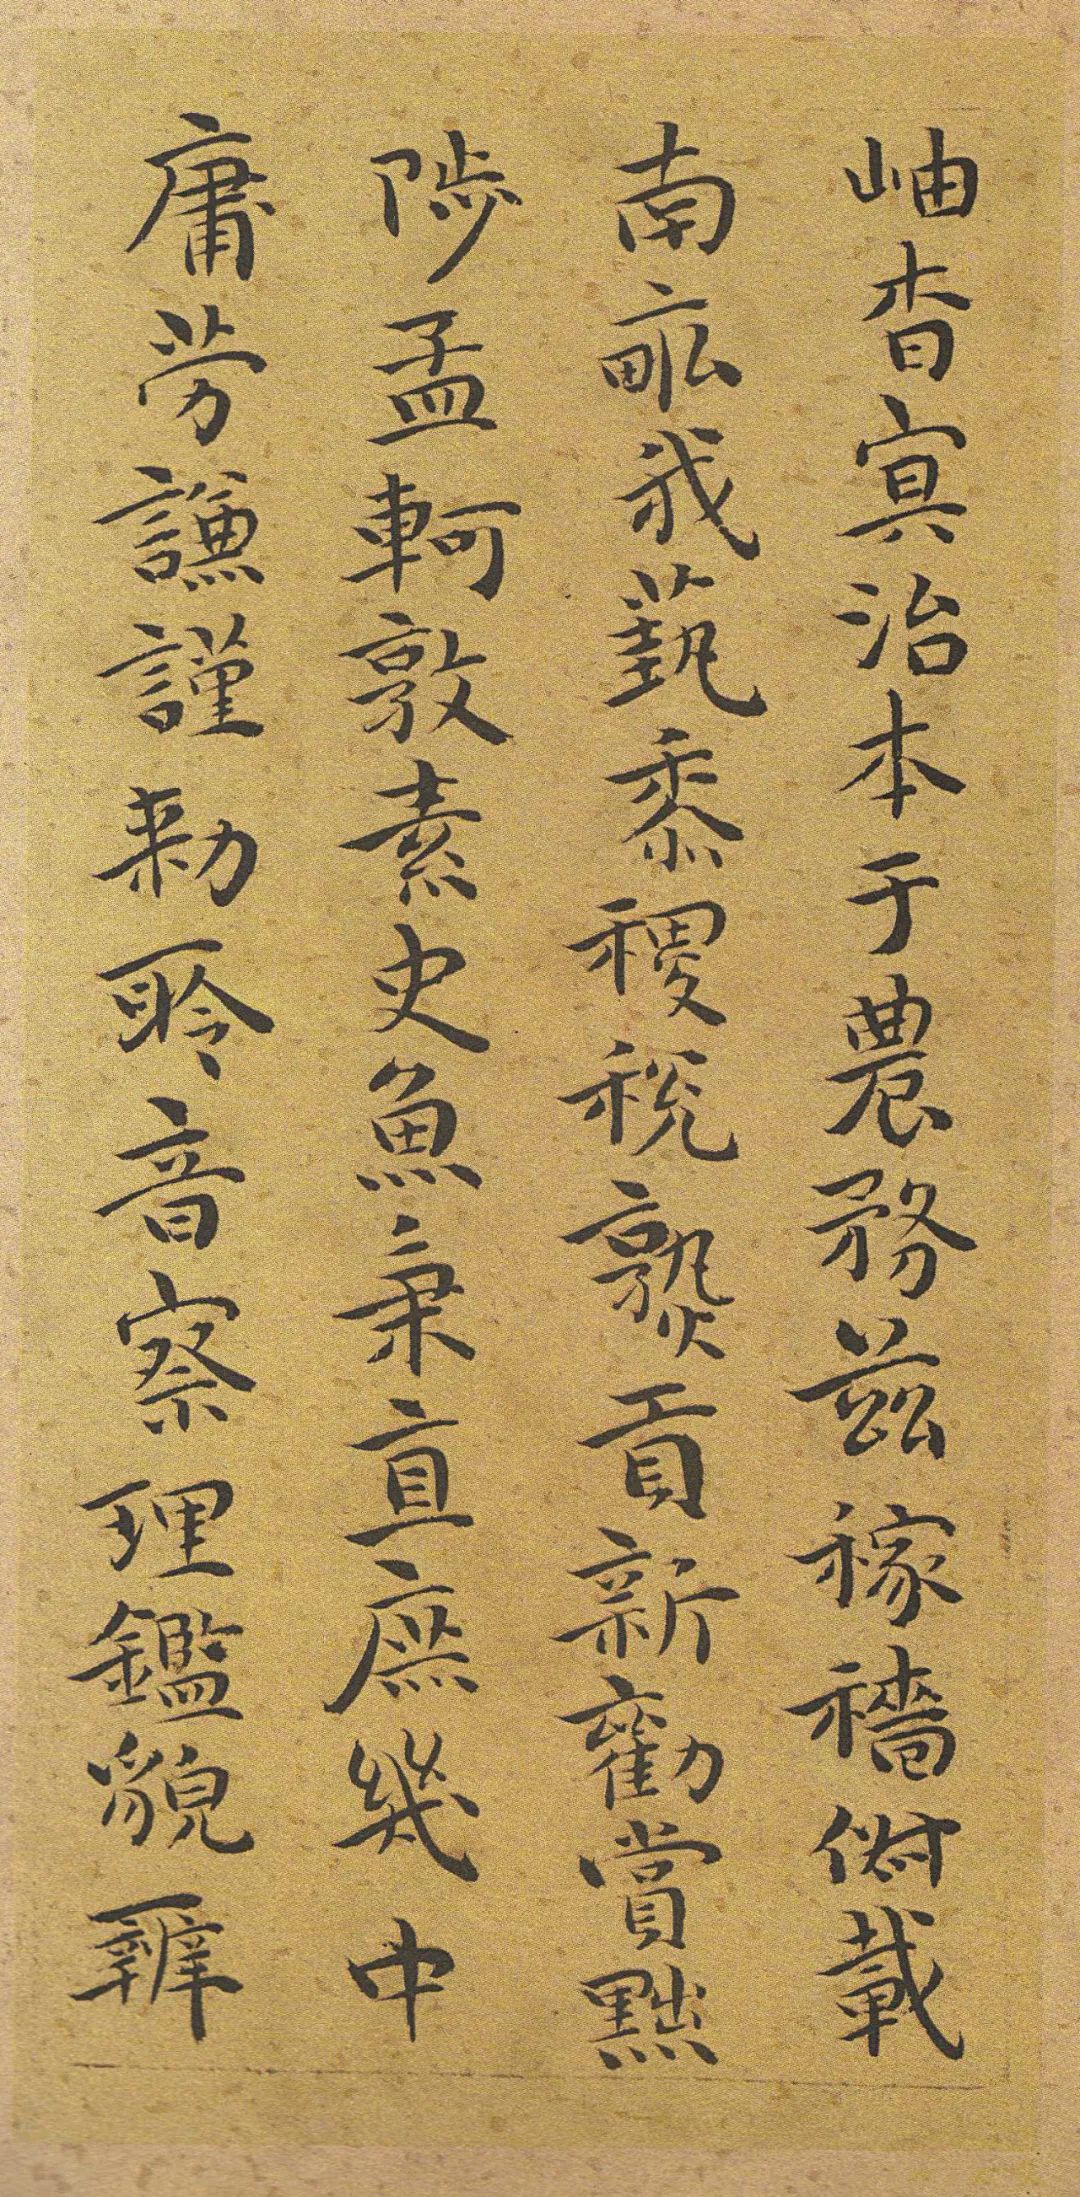 岫杳冥治本于農務茲稼穡俶載
南畝我藝黍稷稅熟貢新勸賞黜
陟孟軻敦素史魚秉直庶幾中
庸勞謙謹勑聆音察理鑑貌辨